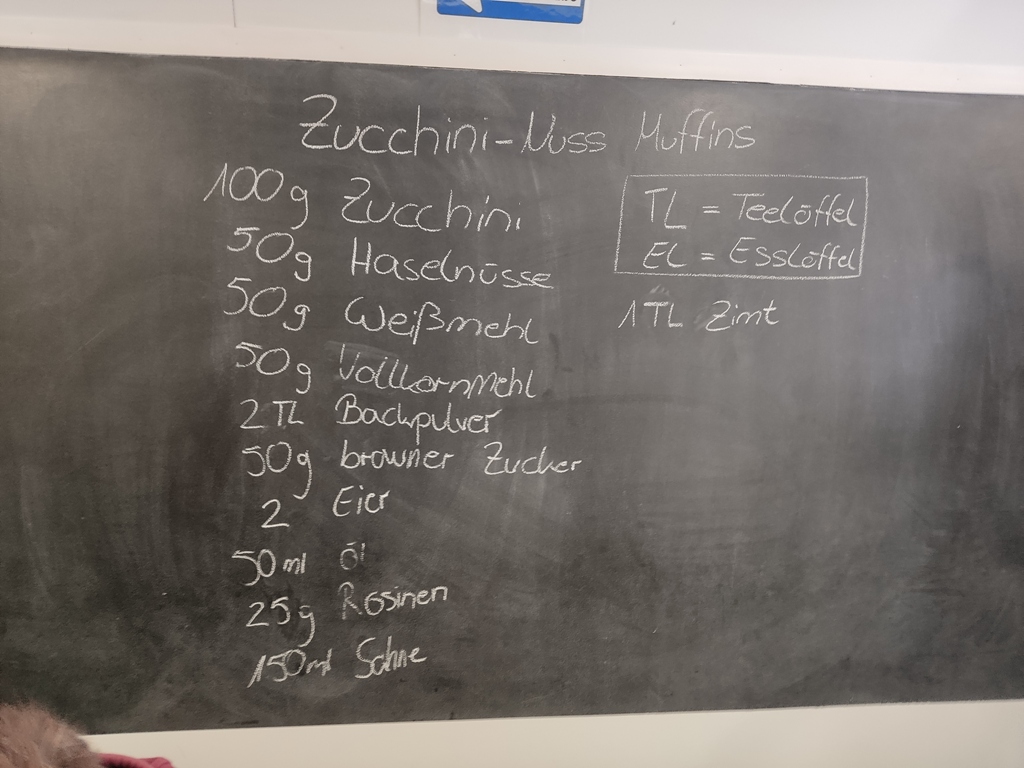 Zucchini-Nuss Muffins
100g Zucchini
50g Haselnüsse
50g Weißmehl
50g Vollkornmehl
2 TL Backpulver
50g browner Zucker
2 Eier
50 ml Öl
25g Rosinen
150ml Sahne
TL = Teelöffel
EL = Esslöffel
1 TL Zimt